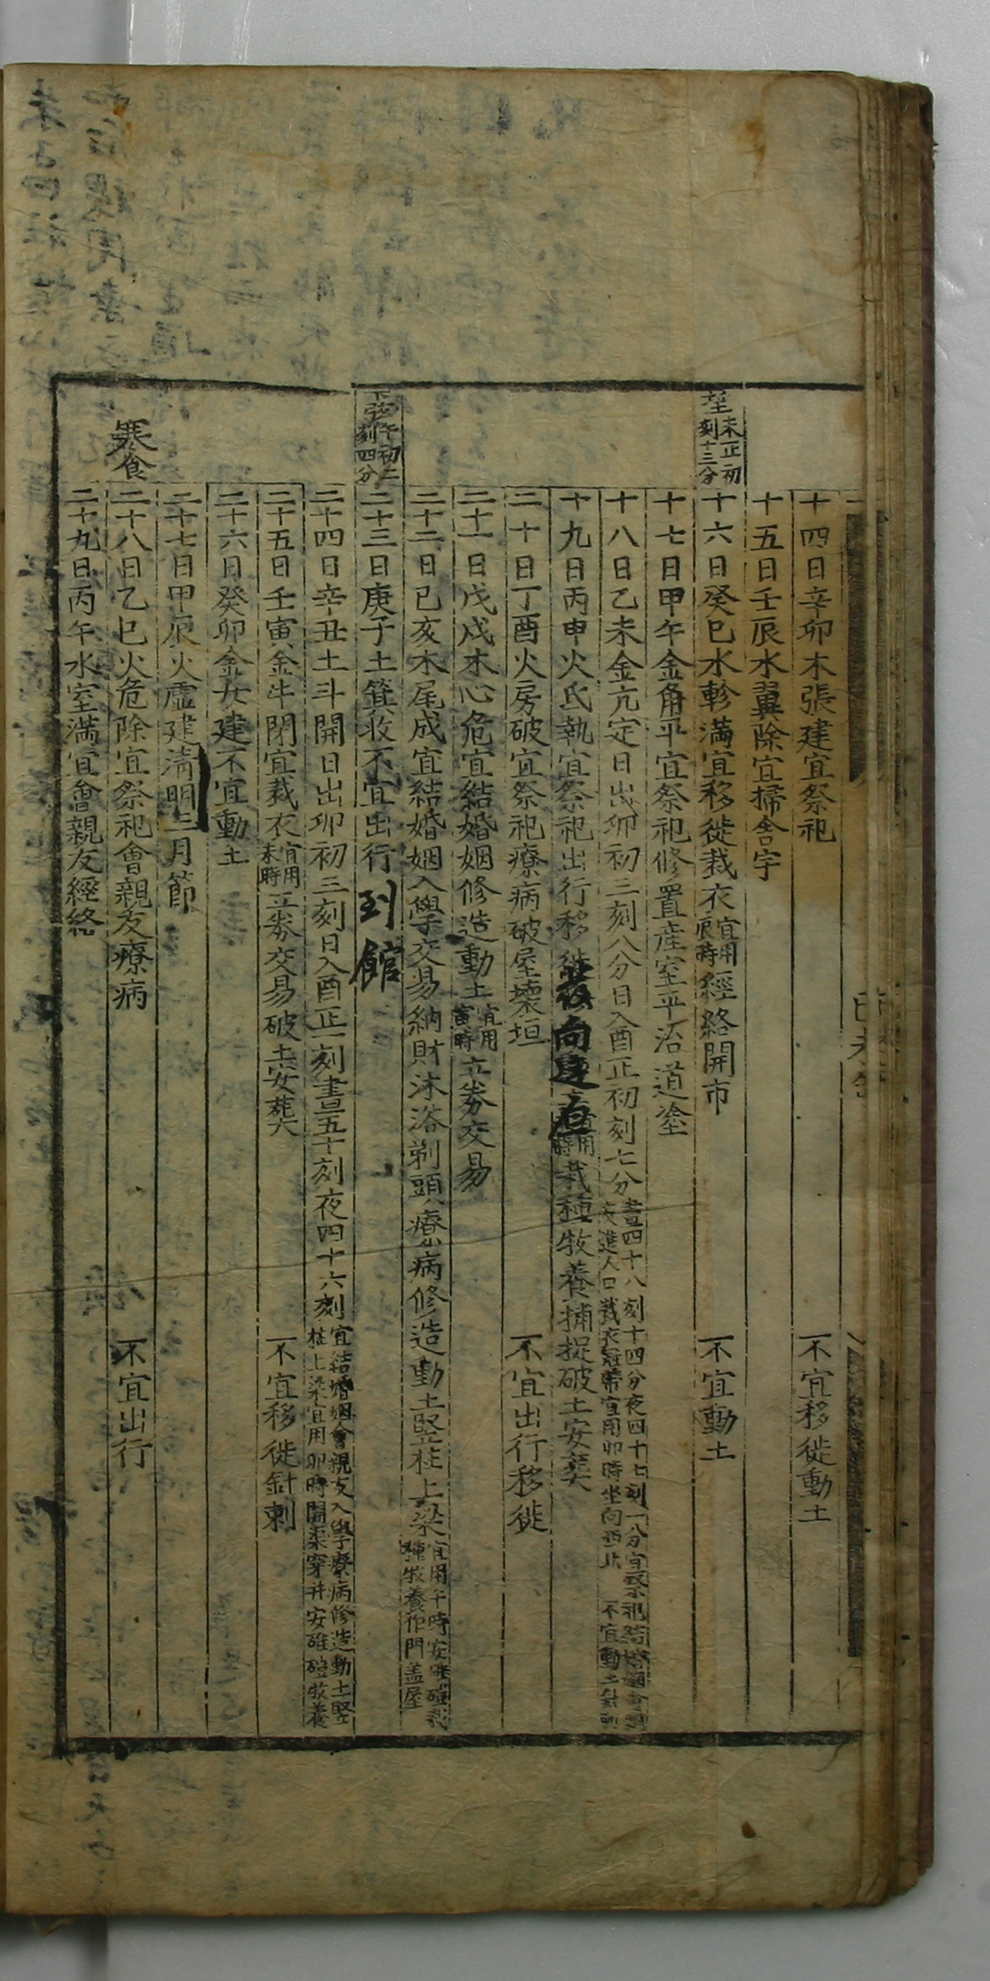 十四日辛卯木張建宜祭祀 不宜移徙動土
十五日壬辰水翼除宜掃舍宇
望未正初刻十三分
十六日癸巳水軫滿宜移徙裁衣宜用辰時經絡開市 不宜動土
十七日甲午金角平宜祭祀修置產室平治道塗
十八日乙未金亢定日出卯初三刻八分日入酉正初刻七分晝四十八刻十四分夜四十七刻一分宜祭祀結婚姻會親友進人口裁衣冠帶宜用卯時坐向西北 不宜動土針刺
十九日丙申火氐執宜祭祀出行移徙 栽種牧養捕捉破土安葬
二十日丁酉火房破宜祭祀療病破屋壞垣 不宜出行移徙
二十一日戊戌木心危宜結婚姻修造動土宜用寅時立券交易
二十二日己亥木尾成宜結婚姻入學交易納財沐浴剃頭療病修造動土竪柱上梁宜用午時安碓磑栽種牧養作門盖屋
下弦午初二刻四分
二十三日庚子土箕收不宜出行 到館
二十四日辛丑土斗開日出卯初三刻日入酉正一刻晝五十刻夜四十六刻宜結婚姻會親友入學療病修造動土竪柱上梁宜用卯時開渠穿井安碓磑牧養
二十五日壬寅金牛閉宜裁衣宜用未時立券交易破土安葬 不宜移徙針刺
二十六日癸卯金女建不宜動土
二十七日甲辰火虛建淸明三月節
寒食
二十八日乙巳火危除宜祭祀會親友療病 不宜出行
二十九日丙午水室滿宜會親友經絡